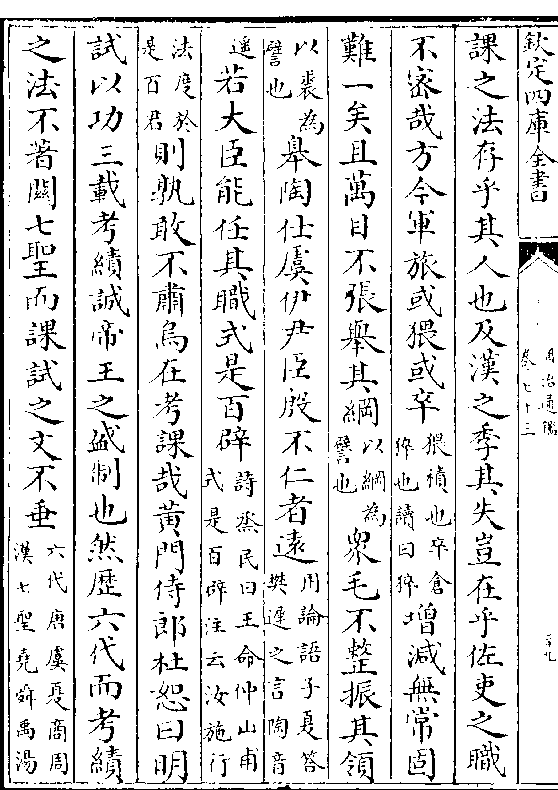 欽定四庫全書
資治通鑑
卷七十三
課之法存乎其人也及漢之季其失豈在乎佐吏之職
不密哉方今軍旅或猥或卒猥積也卒倉猝也讀曰猝增減無常固
難一矣且萬目不張舉其綱以綱為譬也衆毛不整振其領
以裘為譬也臯陶仕虞伊尹臣殷不仁者遠用論語子夏答樊遲之言陶音
遥若大臣能任其職式是百辟詩烝民曰王命仲山甫式是百辟注云汝施行
法度於是百君則孰敢不肅烏在考課哉黄門侍郎杜恕曰明
試以功三載考績誠帝王之盛制也然歴六代而考績
之法不著關七聖而課試之文不垂六代唐虞夏商周漢七聖堯舜禹湯